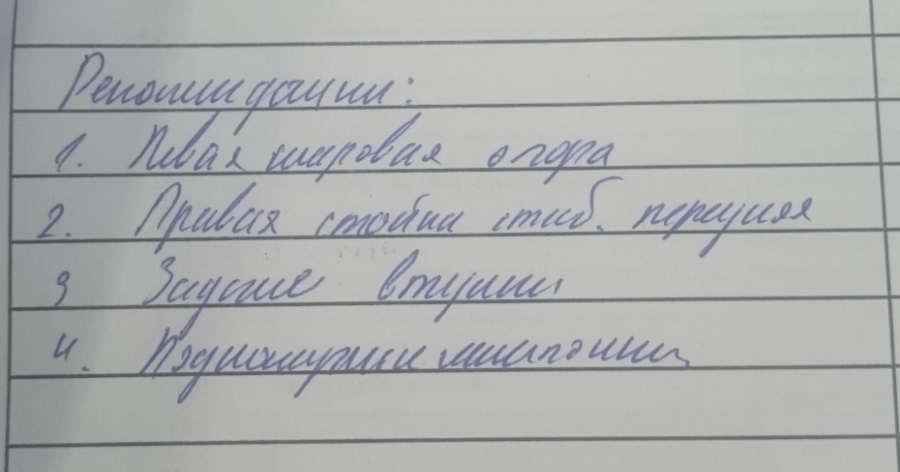 Рекомендации:
1. Левая шаровая опора
2. Правая стойка стаб. передняя
3 Задние втулки
4.